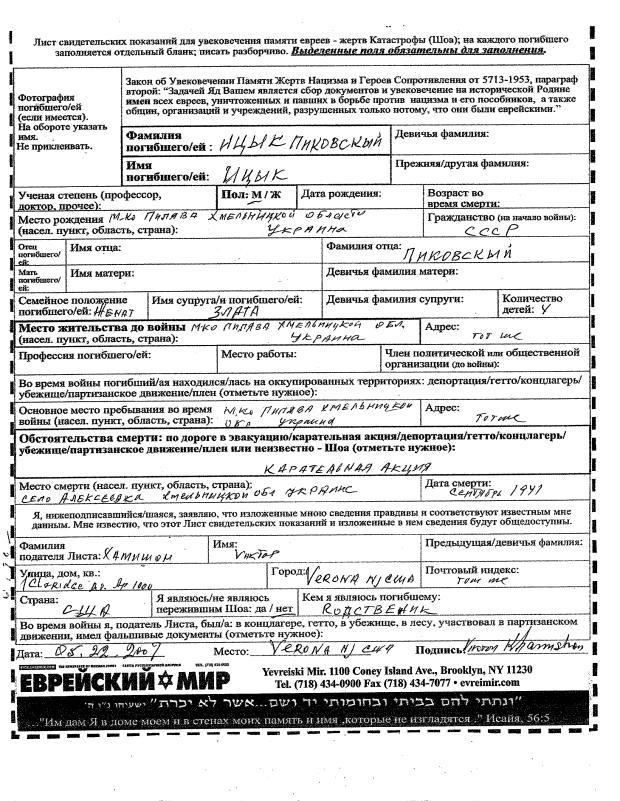 Лист свидетельских показаний для увековечения памяти евреев - жертв Катастрофы (Шоа); на каждого погибшего
заполняется отдельный бланк; писать разборчиво. Выделенные поля обязательны для заполнения.
Фотография
погибшего/ей
(если имеется).
На обороте указать
имя.
Не приклеивать.
Закон об Увековечении Памяти Жертв Нацизма и Героев Сопротивления от 5713-1953, параграф
второй: “Задачей Яд Вашем является сбор документов и увековечение на исторической Родине
имен всех евреев, уничтоженных и павших в борьбе против нацизма и его пособников, а также
общин, организаций и учреждений, разрушенных только потому, что они были еврейскими.”
Фамилия
погибшего/ей : ИЦЫК ПИКОВСКЫЙ
Девичья фамилия:
Имя
погибшего/ей: ИЦЫК
Прежняя/другая фамилия:
Ученая степень (профессор,
доктор, прочее):
Пол: М / Ж
Дата рождения:
Возраст во
время смерти:
Место рождения М-КО ПИЛАВА ХМЕЛЬНИЦКОЙ ОБЛАСТИ
(насел. пункт, область, страна): УКРАИНА
Гражданство (на начало войны):
СССР
Отец
погибшего/
ей:
Имя отца:
Фамилия отца:
ПИКОВСКЫЙ
Мать
погибшего/
ей:
Имя матери:
Девичья фамилия матери:
Семейное положение
погибшего/ей: ЖЕНАТ
Имя супруга/и погибшего/ей:
ЗЛАТА
Девичья фамилия супруги:
Количество
детей: 4
Место жительства до войны М-КО ПИЛАВА ХМЕЛЬНИЦКОЙ ОБЛ.
(насел. пункт, область, страна): УКРАИНА
Адрес:
тот же
Профессия погибшего/ей:
Место работы:
Член политической или общественной
организации (до войны):
Во время войны погибший/ая находился/лась на оккупированных территориях: депортация/гетто/концлагерь/
убежище/партизанское движение/плен (отметьте нужное):
Основное место пребывания во время М-КО ПИЛАВА ХМЕЛЬНИЦКОЙ
войны (насел. пункт, область, страна): ОБЛ Украина
Адрес:
тот же
Обстоятельства смерти: по дороге в эвакуацию/карательная акция/депортация/гетто/концлагерь/
убежище/партизанское движение/плен или неизвестно - Шоа (отметьте нужное):
КАРАТЕЛЬНАЯ АКЦИЯ
Место смерти (насел. пункт, область, страна):
СЕЛО АЛЕКСЕЕВКА ХМЕЛЬНИЦКОЙ ОБЛ УКРАИНЕ
Дата смерти:
СЕНТЯБРЬ 1941
Я, нижеподписавшийся/шаяся, заявляю, что изложенные мною сведения правдивы и соответствуют известным мне
данным. Мне известно, что этот Лист свидетельских показаний и изложенные в нем сведения будут общедоступны.
Фамилия
подателя Листа: ХАМИШОН
Имя:
ВИКТОР
Предыдущая/девичья фамилия:
Улица, дом, кв.:
1 Claridge Dr.
Город: VERONA NJ США
Почтовый индекс:
тот же
Страна:
США
Я являюсь/не являюсь
пережившим Шоа: да / нет
Кем я являюсь погибшему:
РОДСТВЕНИК
Во время войны я, податель Листа, был/а: в концлагере, гетто, в убежище, в лесу, участвовал в партизанском
движении, имел фальшивые документы (отметьте нужное):
Дата: 05.22 2007
Место: VERONA NJ США
Подпись:
ЕВРЕЙСКИЙ МИР
Yevreiski Mir. 1100 Coney Island Ave., Brooklyn, NY 11230
Tel. (718) 434-0900 Fax (718) 434-7077 • evreimir.com
"ונתתי להם בביתי ובחומותי יד ושם...אשר לא יכרת" ישעיהו נ"ו ה'
..."Им дам Я в доме моем и в стенах моих память и имя ,которые не изгладятся ." Исайя, 56:5